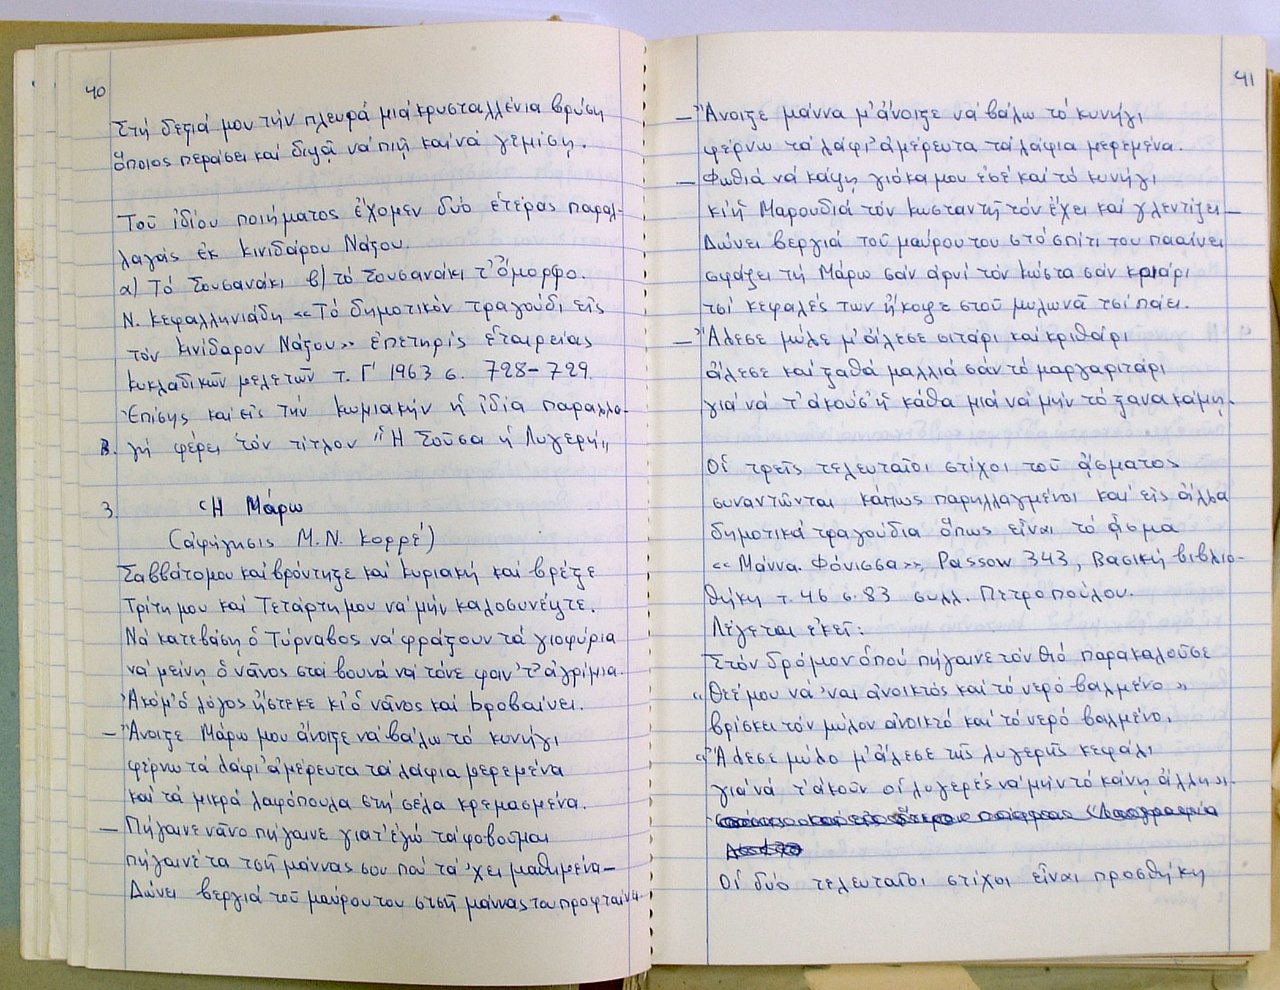 40
Στή δεξιά μου τήν πλευρά μιά κρυσταλλένια βρύση
ὅποιος περάσει καί διψᾷ νά πιῇ καί νά γεμίση.
Τοῦ ἰδίου ποιήματος ἔχομεν δύο ἑτέρας παραλ-
λαγάς ἐκ Κινιδάρου Νάξου.
α) Τό Σουσανάκι β) τό Σουσανάκι τ' ὄμορφο.
Ν. Κεφαλληνιάδη «Τό δημοτικόν τραγούδι εἰς
τόν Κινίδαρον Νάξου» ἐπετηρίς ἑταιρείας
κυκλαδικῶν μελετῶν τ. Γ' 1963 σ. 728-729.
Ἐπίσης καί εἰς τήν Κωμιακήν ἡ ἰδία παραλλα-
β. γή φέρει τόν τίτλον "Ἡ Σοῦσα ἡ Λυγερή"
3. Ἡ Μάρω
(ἀφήγησις Μ.Ν. Κορρέ)
Σαββάτο μου καί βρόντηξε καί Κυριακή καί βρέξε
Τρίτη μου καί Τετάρτη μου νά μήν καλοσυνέψτε.
Νά κατεβάση ὁ Τύρναβος νά φράξουν τά γιοφύρια
νά μείνη ὁ νᾶνος στά βουνά νά τόνε φᾶν' τ' ἀγρίμια.
Ἀκόμ' ὁ λόγος ἤστεκε κι' ὁ νᾶνος καί προβαίνει.
— Ἄνοιξε Μάρω μου ἄνοιξε νά βάλω τό κυνήγι
φέρνω τά λάφι' ἀμέρευτα τά λάφια μερεμένα
καί τά μικρά λαφόπουλα στή σέλα κρεμασμένα.
— Πήγαινε νᾶνο πήγαινε γιατ' ἐγώ τά φοβοῦμαι
πήγαινέ τα τσῆ μάννας σου πού τά 'χει μαθημένα—
Δώνει βεργιά τοῦ μαύρου του στσῆ μάννας του προφταίνει.
41
— Ἄνοιξε μάννα μ' ἄνοιξε νά βάλω τό κυνήγι
φέρνω τά λάφι' ἀμέρευτα τά λάφια μερεμένα.
— Φωθιά νά κάψη γιόκα μου ἐσέ καί τό κυνήγι
κι' ἡ Μαρουδιά τόν Κωσταντῆ τόν ἔχει καί γλεντίζει—
Δώνει βεργιά τοῦ μαύρου του στό σπίτι του πααίνει
σφάζει τή Μάρω σάν ἀρνί τόν Κώστα σάν κριάρι
τσί κεφαλές των ἤκοψε στοῦ μυλωνᾶ τσί πάει.
— Ἄλεσε μύλε μ' ἄλεσε σιτάρι καί κριθάρι
ἄλεσε καί ξαθά μαλλιά σάν τό μαργαριτάρι
γιά νά τ' ἀκούσ' ἡ κάθα μιά νά μήν τό ξανακάμη.
Οἱ τρεῖς τελευταῖοι στίχοι τοῦ ᾄσματος
συναντῶνται κάπως παρηλλαγμένοι καί εἰς ἄλλα
δημοτικά τραγούδια ὅπως εἶναι τό ᾆσμα
«Μάννα Φόνισσα», Passow 343, Βασική βιβλιο-
θήκη τ. 46 σ. 83 συλλ. Πετροπούλου.
Λέγεται ἐκεῖ:
Στόν δρόμον ὁπού πήγαινε τόν θιό παρακαλοῦσε
«Θεέ μου νά 'ναι ἀνοικτός καί τό νερό βαλμένο»
βρίσκει τόν μύλον ἀνοικτό καί τό νερό βαλμένο.
«Ἄλεσε μύλο μ' ἄλεσε τῆς λυγερῆς κεφάλι
γιά νά τ' ἀκοῦν οἱ λυγερές νά μήν τό κάνη ἄλλη».
Οἱ δύο τελευταῖοι στίχοι εἶναι προσθήκη